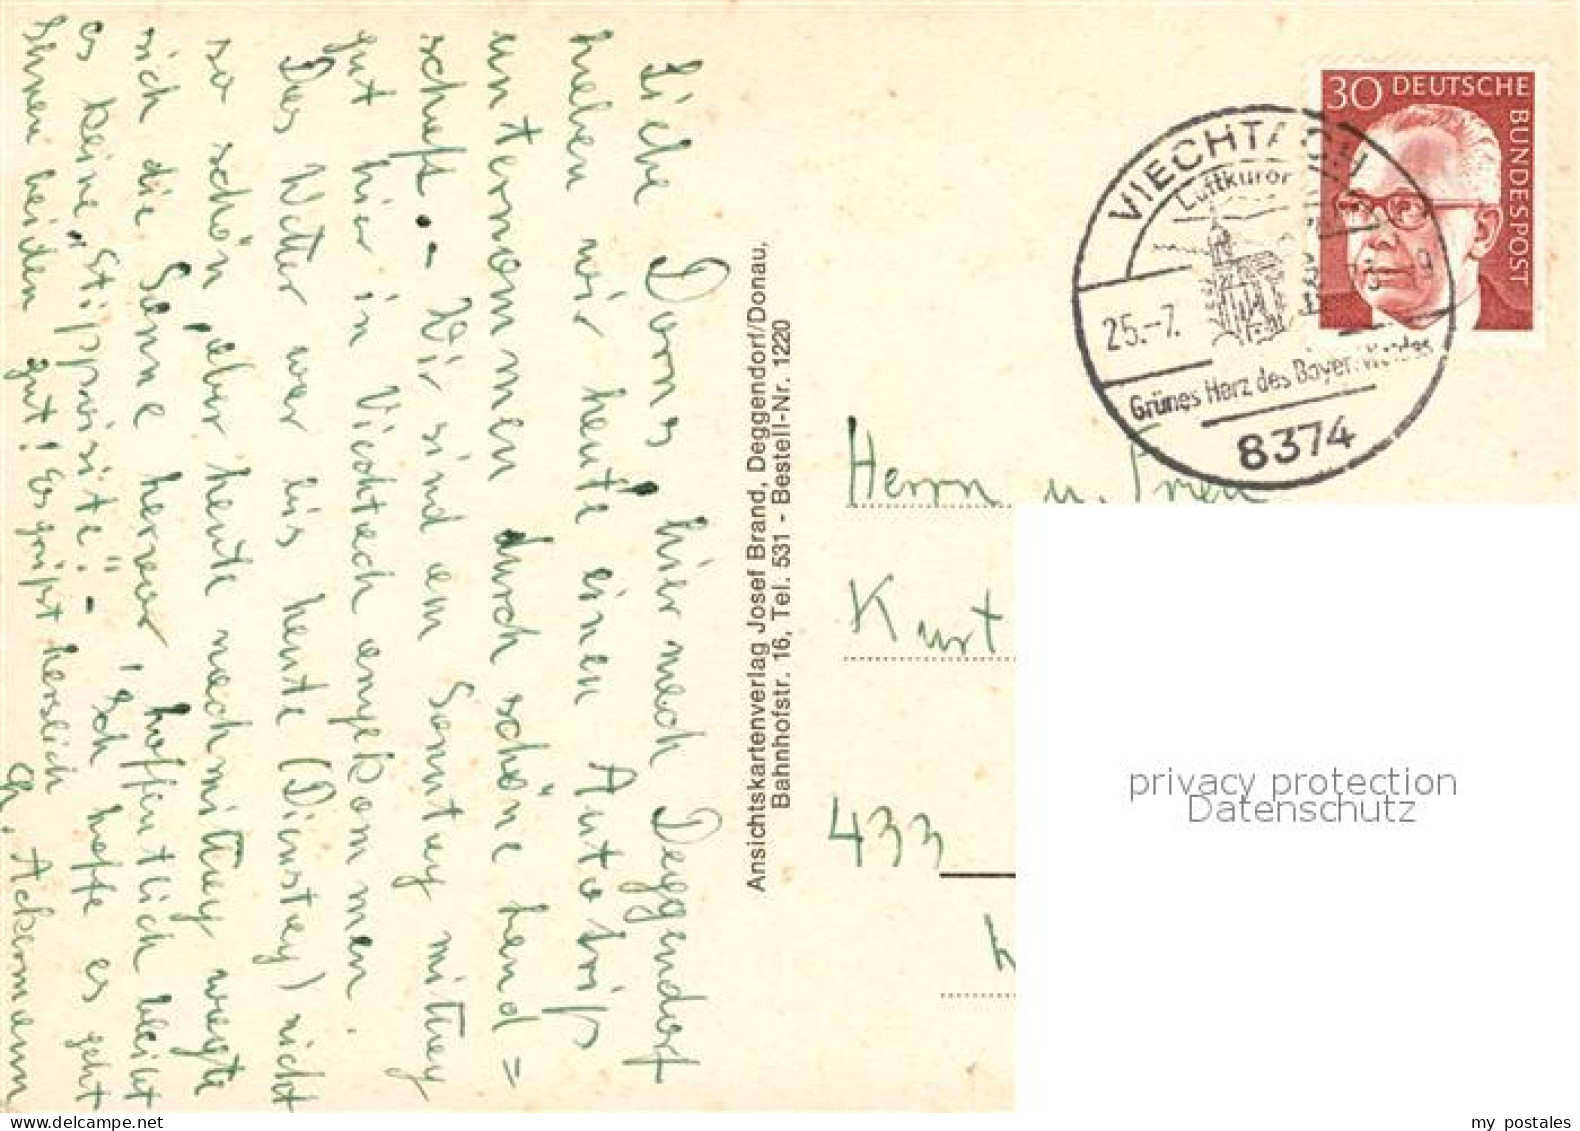 Liebe Dorns, hier nach Deggendorf
haben wir heute einen Autotrip
unternommen durch schöne Land=
schaft. - Wir sind am Sonntag mittag
gut hier in Viechtach angekommen.
Das Wetter war bis heute (Dienstag) nicht
so schön, aber heute nachmittag wagte
sich die Sonne hervor, hoffentlich bleibt
es keine „Stippvisite". - Ich hoffe es geht
Ihnen beiden gut! Es grüßt herzlich
Ackermann
Ansichtskartenverlag Josef Brand, Deggendorf/Donau,
Bahnhofstr. 16, Tel. 531 - Bestell-Nr. 1220
30 DEUTSCHE
BUNDESPOST
VIECHTACH
Luftkuror
25.-7.
Grünes Herz des Bayer. Waldes
8374
Herrn u. Frau
Kurt
433
privacy protection
Datenschutz
my postales